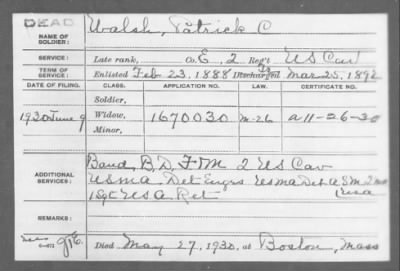 DEAD
NAME OF SOLDIER: Walsh, Patrick C
SERVICE: Late rank, Co. E, 2 Reg't US Cav
TERM OF SERVICE: Enlisted Feb 23, 1888 Discharged Mar 25, 1892
DATE OF FILING. CLASS. APPLICATION NO. LAW. CERTIFICATE NO.
Soldier,
1930 June 9 Widow, 1670030 M-26 a 11-26-30
Minor,
ADDITIONAL SERVICES: Band, B, D, F + M 2 US Cav
USMA Det Engrs USMA Det
1 Sgt USA Ret USA
REMARKS:
Died May 27, 1930, at Boston, Mass